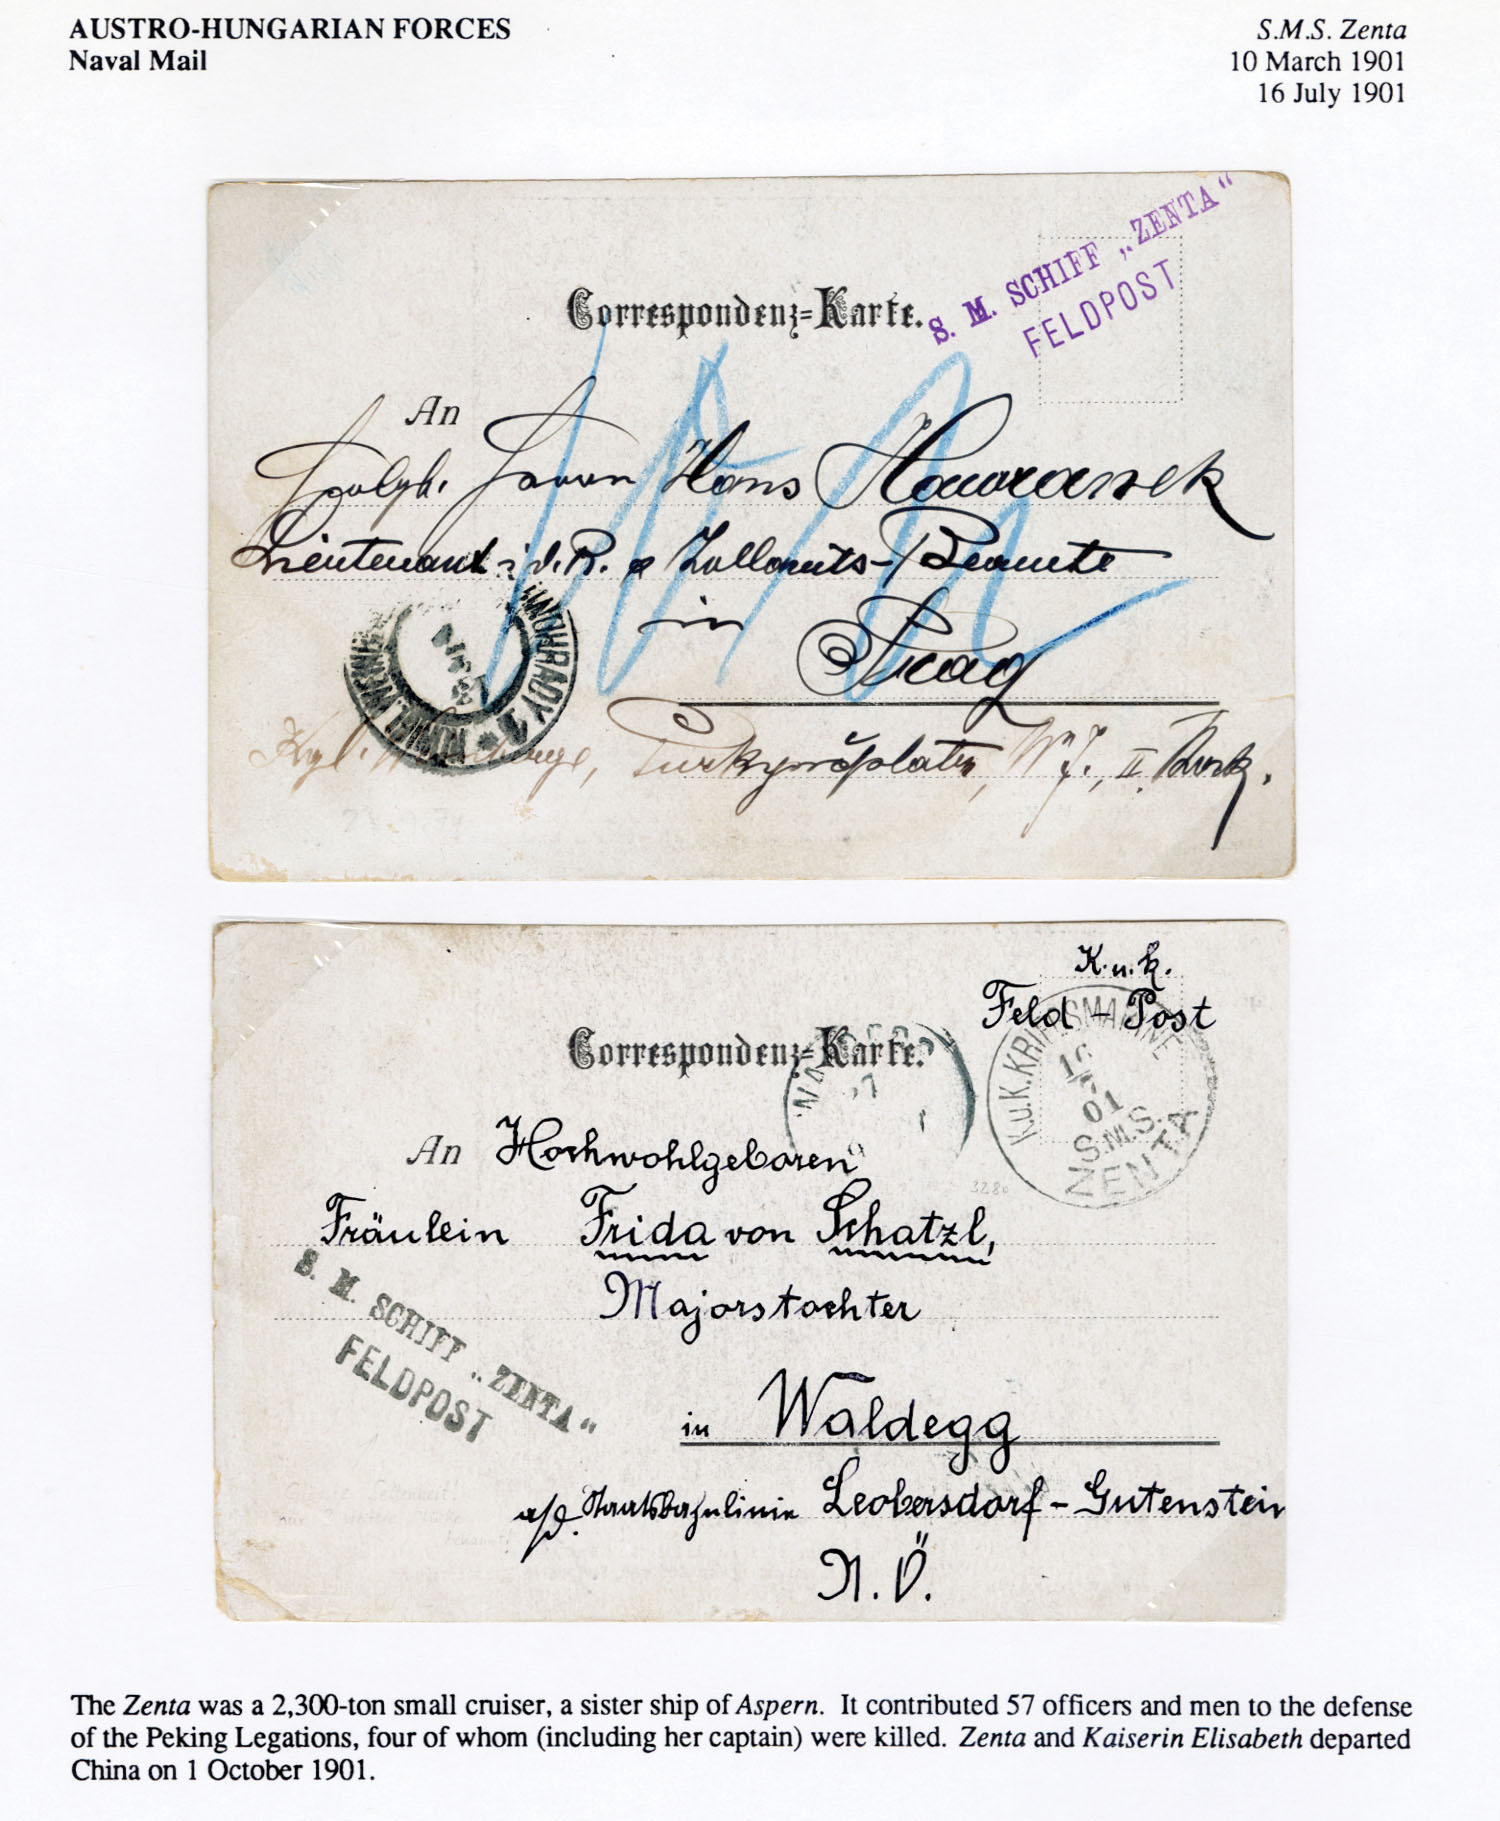 AUSTRO-HUNGARIAN FORCES
Naval Mail
S.M.S. Zenta
10 March 1901
16 July 1901
S. M. SCHIFF „ZENTA“
FELDPOST
Correspondenz-Karte.
An
Herrn Hans Hawranek
Lieutenant i. d. R. & Zollamts-Beamte
in Prag
Kgl. Weinberge, Purkyněplatz, II. Stock.
K.u.k.
Feld-Post
K.u.K. KRIEGSMARINE
01
S.M.S.
ZENTA
Correspondenz-Karte.
An Hochwohlgeboren
Fräulein Frida von Schatzl,
Majorstochter
S. M. SCHIFF „ZENTA“
FELDPOST
in Waldegg
a/d. Staatsbahnlinie Leobersdorf-Gutenstein
N.Ö.
3280
The Zenta was a 2,300-ton small cruiser, a sister ship of Aspern. It contributed 57 officers and men to the defense
of the Peking Legations, four of whom (including her captain) were killed. Zenta and Kaiserin Elisabeth departed
China on 1 October 1901.